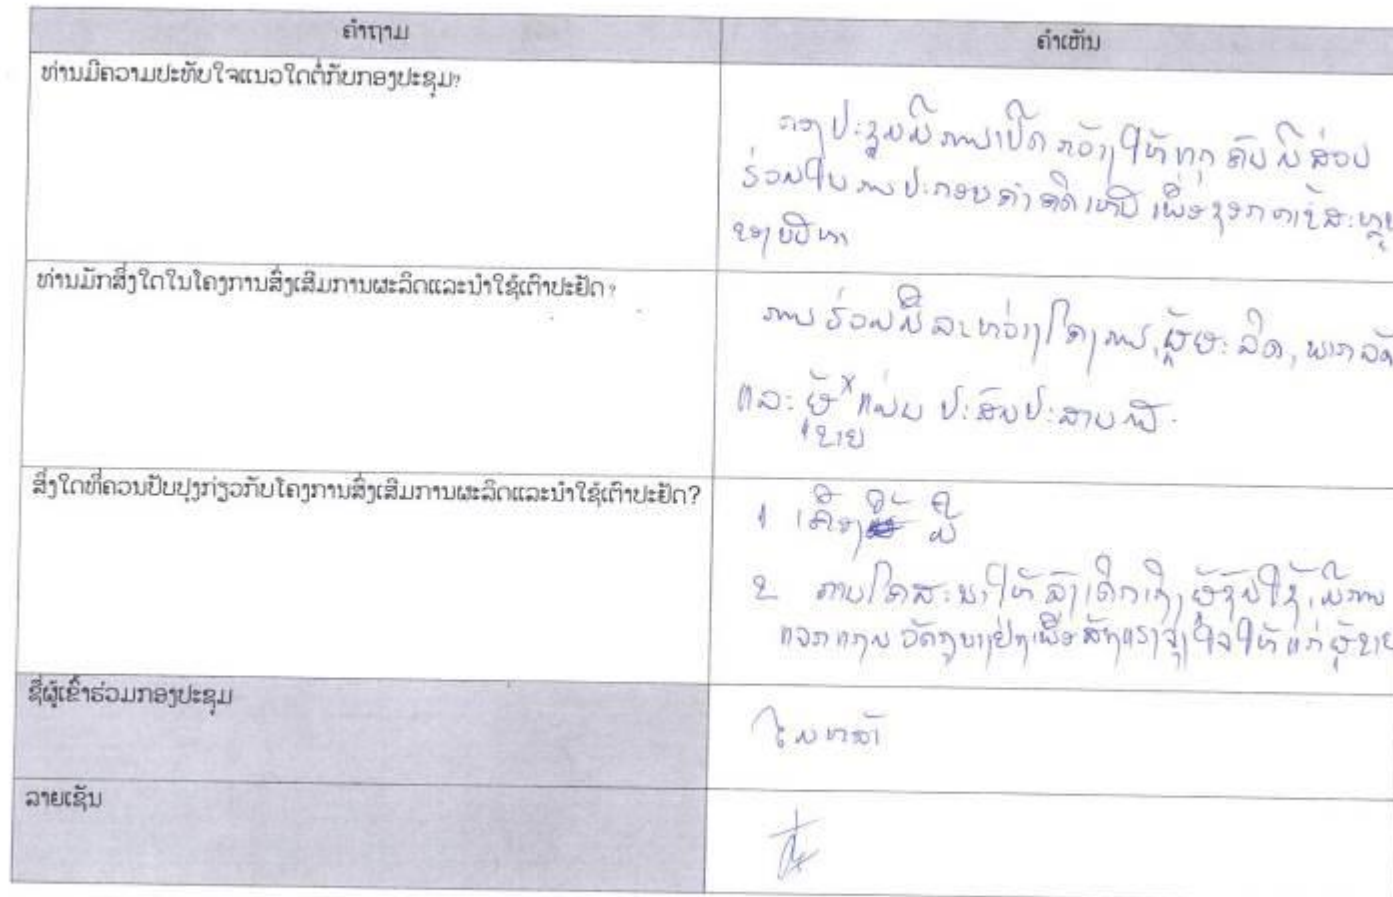 ຄຳຖາມ
ຄຳເຫັນ
ທ່ານມີຄວາມປະທັບໃຈແນວໃດຕໍ່ກັບກອງປະຊຸມ?
ກອງປະຊຸມມີການເປີດກວ້າງໃຫ້ທຸກຄົນມີສ່ວນ
ຮ່ວມໃນການປະກອບຄຳຄິດເຫັນ ເພື່ອ
ຂອງບັນຫາ
ທ່ານມັກສິ່ງໃດໃນໂຄງການສົ່ງເສີມການຜະລິດແລະນຳໃຊ້ເຕົາປະຢັດ?
ການຮ່ວມມືລະຫວ່າງໂຄງການ, ຜູ້ຜະລິດ, ພາກລັດ
ແລະ ຜູ້ຂາຍ ແມ່ນ ປະສົບປະສານດີ.
ສິ່ງໃດທີ່ຄວນປັບປຸງກ່ຽວກັບໂຄງການສົ່ງເສີມການຜະລິດແລະນຳໃຊ້ເຕົາປະຢັດ?
1
2 ການໂຄສະນາໃຫ້ລົງເລິກເຖິງຜູ້ຊົມໃຊ້, ມີການ
ແຈກແຖມ ວັດຖຸບາງຢ່າງເພື່ອ ແຮງຈູງໃຈໃຫ້ແກ່ຜູ້ຂາຍ
ຊື່ຜູ້ເຂົ້າຮ່ວມກອງປະຊຸມ
ລາຍເຊັນ